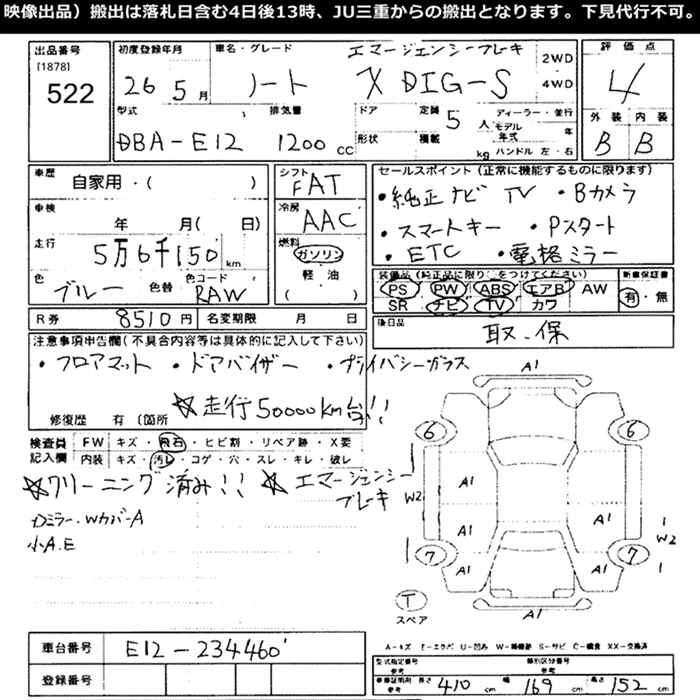 映像出品）搬出は落札日含む4日後13時、JU三重からの搬出となります。下見代行不可。
出品番号
[1878]
522
初度登録年月
26 5月
車名・グレード
エマージェンシーブレーキ
ノート X DIG-S
2WD
4WD
評価点
4
外装 内装
B B
型式
DBA-E12
排気量
1200 CC
ドア
形状
定員 5 人
積載 kg
ディーラー・並行
モデル年式 年
ハンドル 左・右
車歴
自家用・( )
シフト
FAT
車検
年 月( 日)
冷房
AAC
走行
5万6千150 km
燃料
ガソリン
軽・油
( )
色
ブルー
色替
色コード
RAW
セールスポイント（正常に機能するものに限ります）
・純正ナビ TV ・Bカメラ
・スマートキー ・Pスタート
・ETC ・電格ミラー
装備品（純正品に限り○をつけてください）
PS PW ABS エアB AW
SR ナビ TV カワ
新車保証書
有・無
R券 8510円 名変期限 月 日
後日品
取・保
注意事項申告欄（不具合内容等は具体的に記入して下さい）
・フロアマット ・ドアバイザー ・プライバシーガラス
☆走行50000km台!!
修復歴 有（箇所
検査員記入欄
FW キズ・飛石・ヒビ割・リペア跡・X要
内装 キズ・汚レ・コゲ・穴・スレ・キレ・破レ
☆クリーニング済み!! ☆エマージェンシーブレーキ
Dミラー、Wカバー A
小A.E
A1
6 6
W2 A1
A1 A1 W2
7 A1 A1 7
T
スペア
A1
A-キズ E-エクボ U-凹み W-補修跡 S-サビ C-腐食 XX-交換済
車台番号 E12-234460
登録番号
型式指定番号
参考
類別区分番号
参考
車庫証明用
参考
長さ 410 cm 幅 169 cm 高さ 152 cm